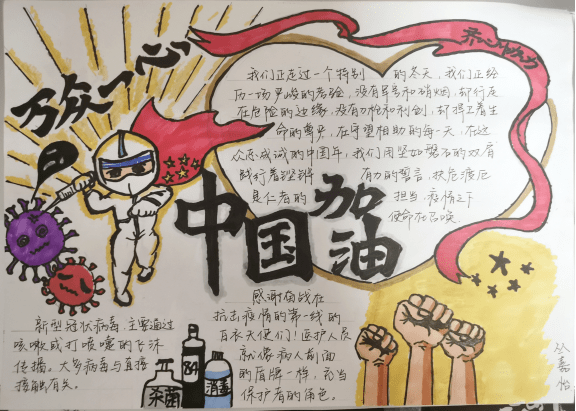 万众一心
齐心协力
我们正走过一个特别 的冬天，我们正经
历一场严峻的考验，没有异声和硝烟，却行走
在危险的边缘，没有刀枪和利剑，却捍卫着生
命的尊严，在守望相助的每一天，在这
众志成城的中国年，我们用坚如磐石的双肩
践行着铿锵 有力的誓言，扶危渡厄
是仁者的 担当，疫情之下
使命在召唤
中国加油
新型冠状病毒，主要通过
咳嗽或打喷嚏的飞沫
传播。大多病毒与直接
接触有关。
杀菌
84
消毒
感谢奋战在
抗击疫情的第一线的
白衣天使们！医护人员
就像病人前面
的盾牌一样，充当
保护者的角色。
丛嘉怡